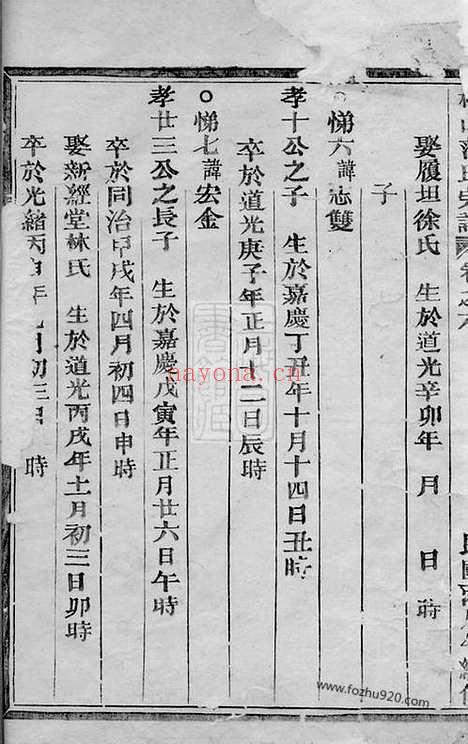 娶履坦徐氏 生於道光辛卯年 月 日 時
子
○悌六諱志雙
孝十公之子 生於嘉慶丁丑年十月十四日丑時
卒於道光庚子年正月十二日辰時
○悌七諱宏金
孝廿三公之長子 生於嘉慶戊寅年正月廿六日午時
卒於同治甲戌年四月初四日申時
娶新經堂林氏 生於道光丙戌年十一月初三日卯時
卒於光緒丙申年 月初三日 時
nayona.cn
www.fozhu920.com